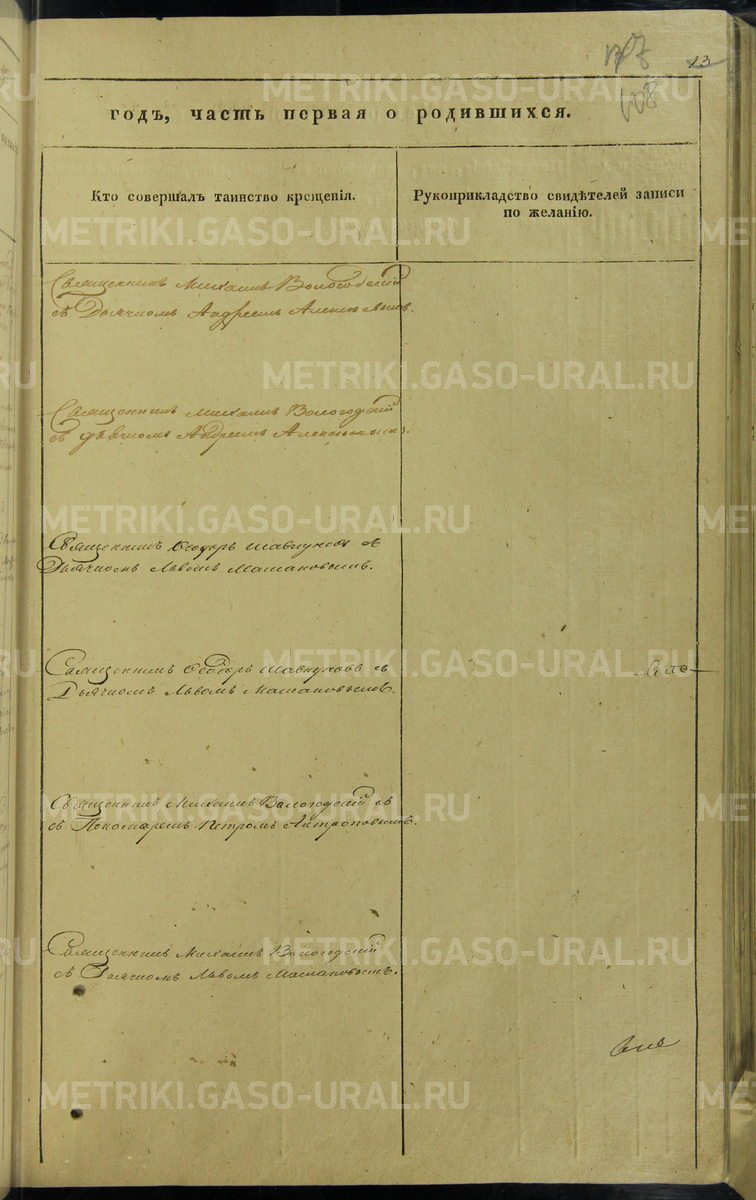 13
108
годъ, часть первая о родившихся.
Кто совершалъ таинство крещенія.
Рукоприкладство свидѣтелей записи
по желанію.
Священникъ Михаилъ Вологодскій
съ Дьячкомъ Андреемъ
Священникъ Михаилъ Вологодскій
съ дьячкомъ Андреемъ
Священникъ Ѳеодоръ Шавкуновъ съ
Дьячкомъ Львомъ Мамановымъ.
Священникъ Ѳеодоръ Шавкуновъ съ
Дьячкомъ Львомъ Мамановымъ.
Священникъ Михаилъ Вологодскій съ
съ Пономаремъ Петромъ Антроповымъ.
Священникъ Михаилъ Вологодскій
съ Дьячкомъ Львомъ Мамановымъ.
METRIKI.GASO-URAL.RU